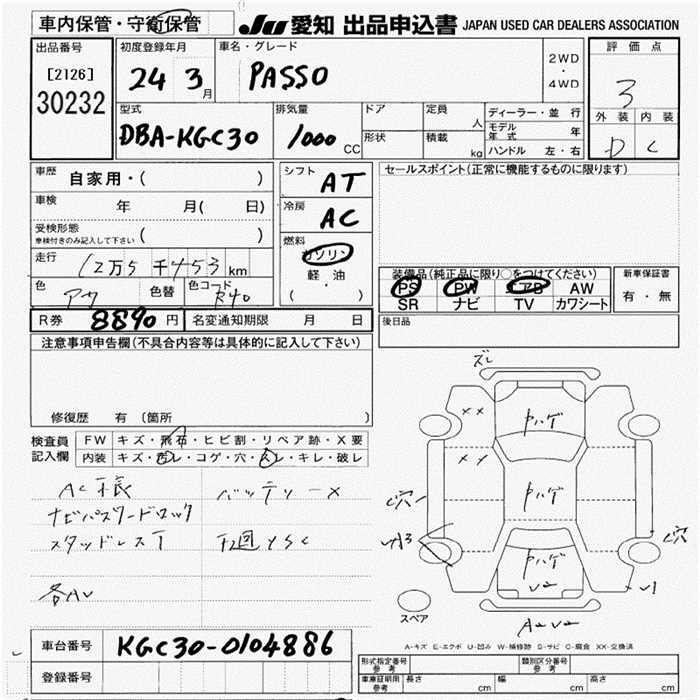 車内保管・守衛保管
JU 愛知 出品申込書 JAPAN USED CAR DEALERS ASSOCIATION
出品番号
[2126]
30232
初度登録年月
24 3月
車名・グレード
PASSO
2WD
・
4WD
評価点
3
外装 内装
D C
型式
DBA-KGC30
排気量
1000 CC
ドア
形状
定員 人
積載 kg
ディーラー・並行
モデル年式 年
ハンドル 左・右
車歴 自家用・( )
車検 年 月( 日)
受検形態
車検付きのみ記入して下さい ( )
走行 12万5千453 km
色 アカ 色替 色コード R40
シフト AT
冷房 AC
燃料
ガソリン
軽油
・
( )
セールスポイント(正常に機能するものに限ります)
装備品(純正品に限り○をつけてください)
PS PW エアB AW
SR ナビ TV カワシート
新車保証書
有・無
R券 8890円 名変通知期限 月 日
後日品
注意事項申告欄(不具合内容等は具体的に記入して下さい)
修復歴 有 〔箇所
検査員
記入欄
FW キズ・飛石・ヒビ割・リペア跡・X要
内装 キズ・汚レ・コゲ・穴・スレ・キレ・破レ
バッテリーX
ナビパスワードロック
スタッドレスT
各AU
ズレ
XX
XX
中ハゲ
中ハゲ
中ハゲ
U2
C穴
C穴
U1
A2U2
スペア
A-キズ E-エクボ U-凹み W-補修跡 S-サビ C-腐食 XX-交換済
車台番号 KGC30-0104886
登録番号
形式指定番号
参考
類別区分番号
参考
車庫証明用
参考
長さ cm 幅 cm 高さ cm